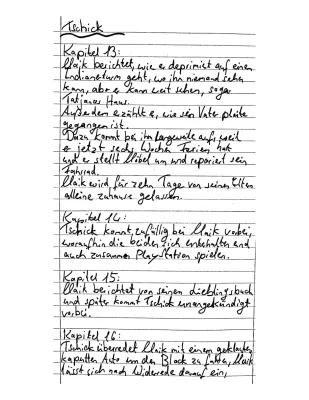 Tschick
Kapitel 13:
Maik berichtet, wie er deprimiert auf einen
Indianerturm geht, wo ihn niemand sehen
kann, aber er kann weit sehen, sogar
Tatjanas Haus.
Außerdem erzählt er, wie sein Vater pleite
gegangen ist.
Dazu kommt bei ihm Langeweile auf, weil
er jetzt sechs Wochen Ferien hat
und er stellt Möbel um und repariert sein
Fahrrad.
Maik wird für zehn Tage von seinen Eltern
alleine zuhause gelassen.
Kapitel 14:
Tschick kommt zufällig bei Maik vorbei,
woraufhin die beiden sich unterhalten und
auch zusammen Playstation spielen.
Kapitel 15:
Maik berichtet von seinem Lieblingsbuch
und später kommt Tschick unangekündigt
vorbei.
Kapitel 16:
Tschick überredet Maik mit einem geklauten,
kaputten Auto um den Block zu fahren, Maik
lässt sich nach Widerrede darauf ein,